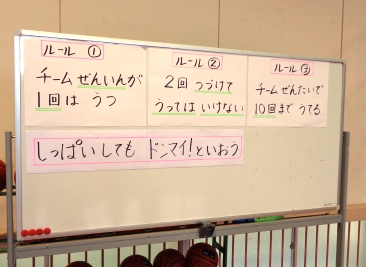 ルール ①
チーム ぜんいんが
1回は うつ
ルール ②
2回 つづけて
うっては いけない
ルール ③
チーム ぜんたいで
10回まで うてる
しっぱいしても ドンマイ!といおう